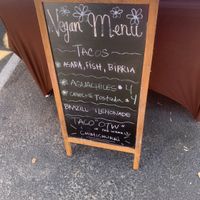 Vegan Menu
TACOS
ASADA, FISH, BIRRIA
AGUACHILES 4
CEVICHE TOSTADA 4
BRAZILL LEMONADE
TACO "OTW"
CHIMICHURRI